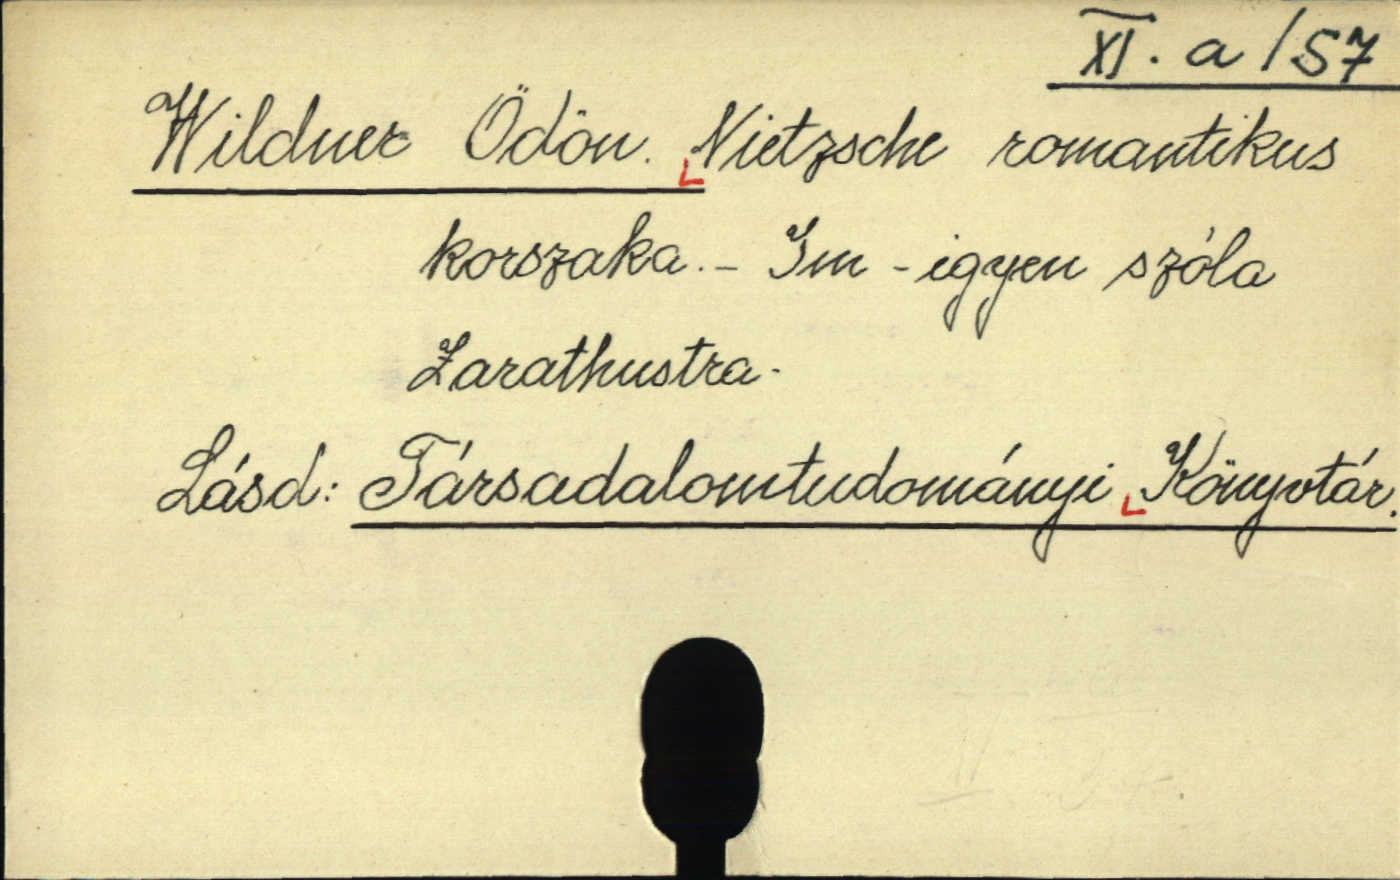 XI. a / 57
Wildner Ödön. Nietzsche romantikus
korszaka. - Im - igyen szóla
Zarathustra.
Lásd: Társadalomtudományi Könyvtár.